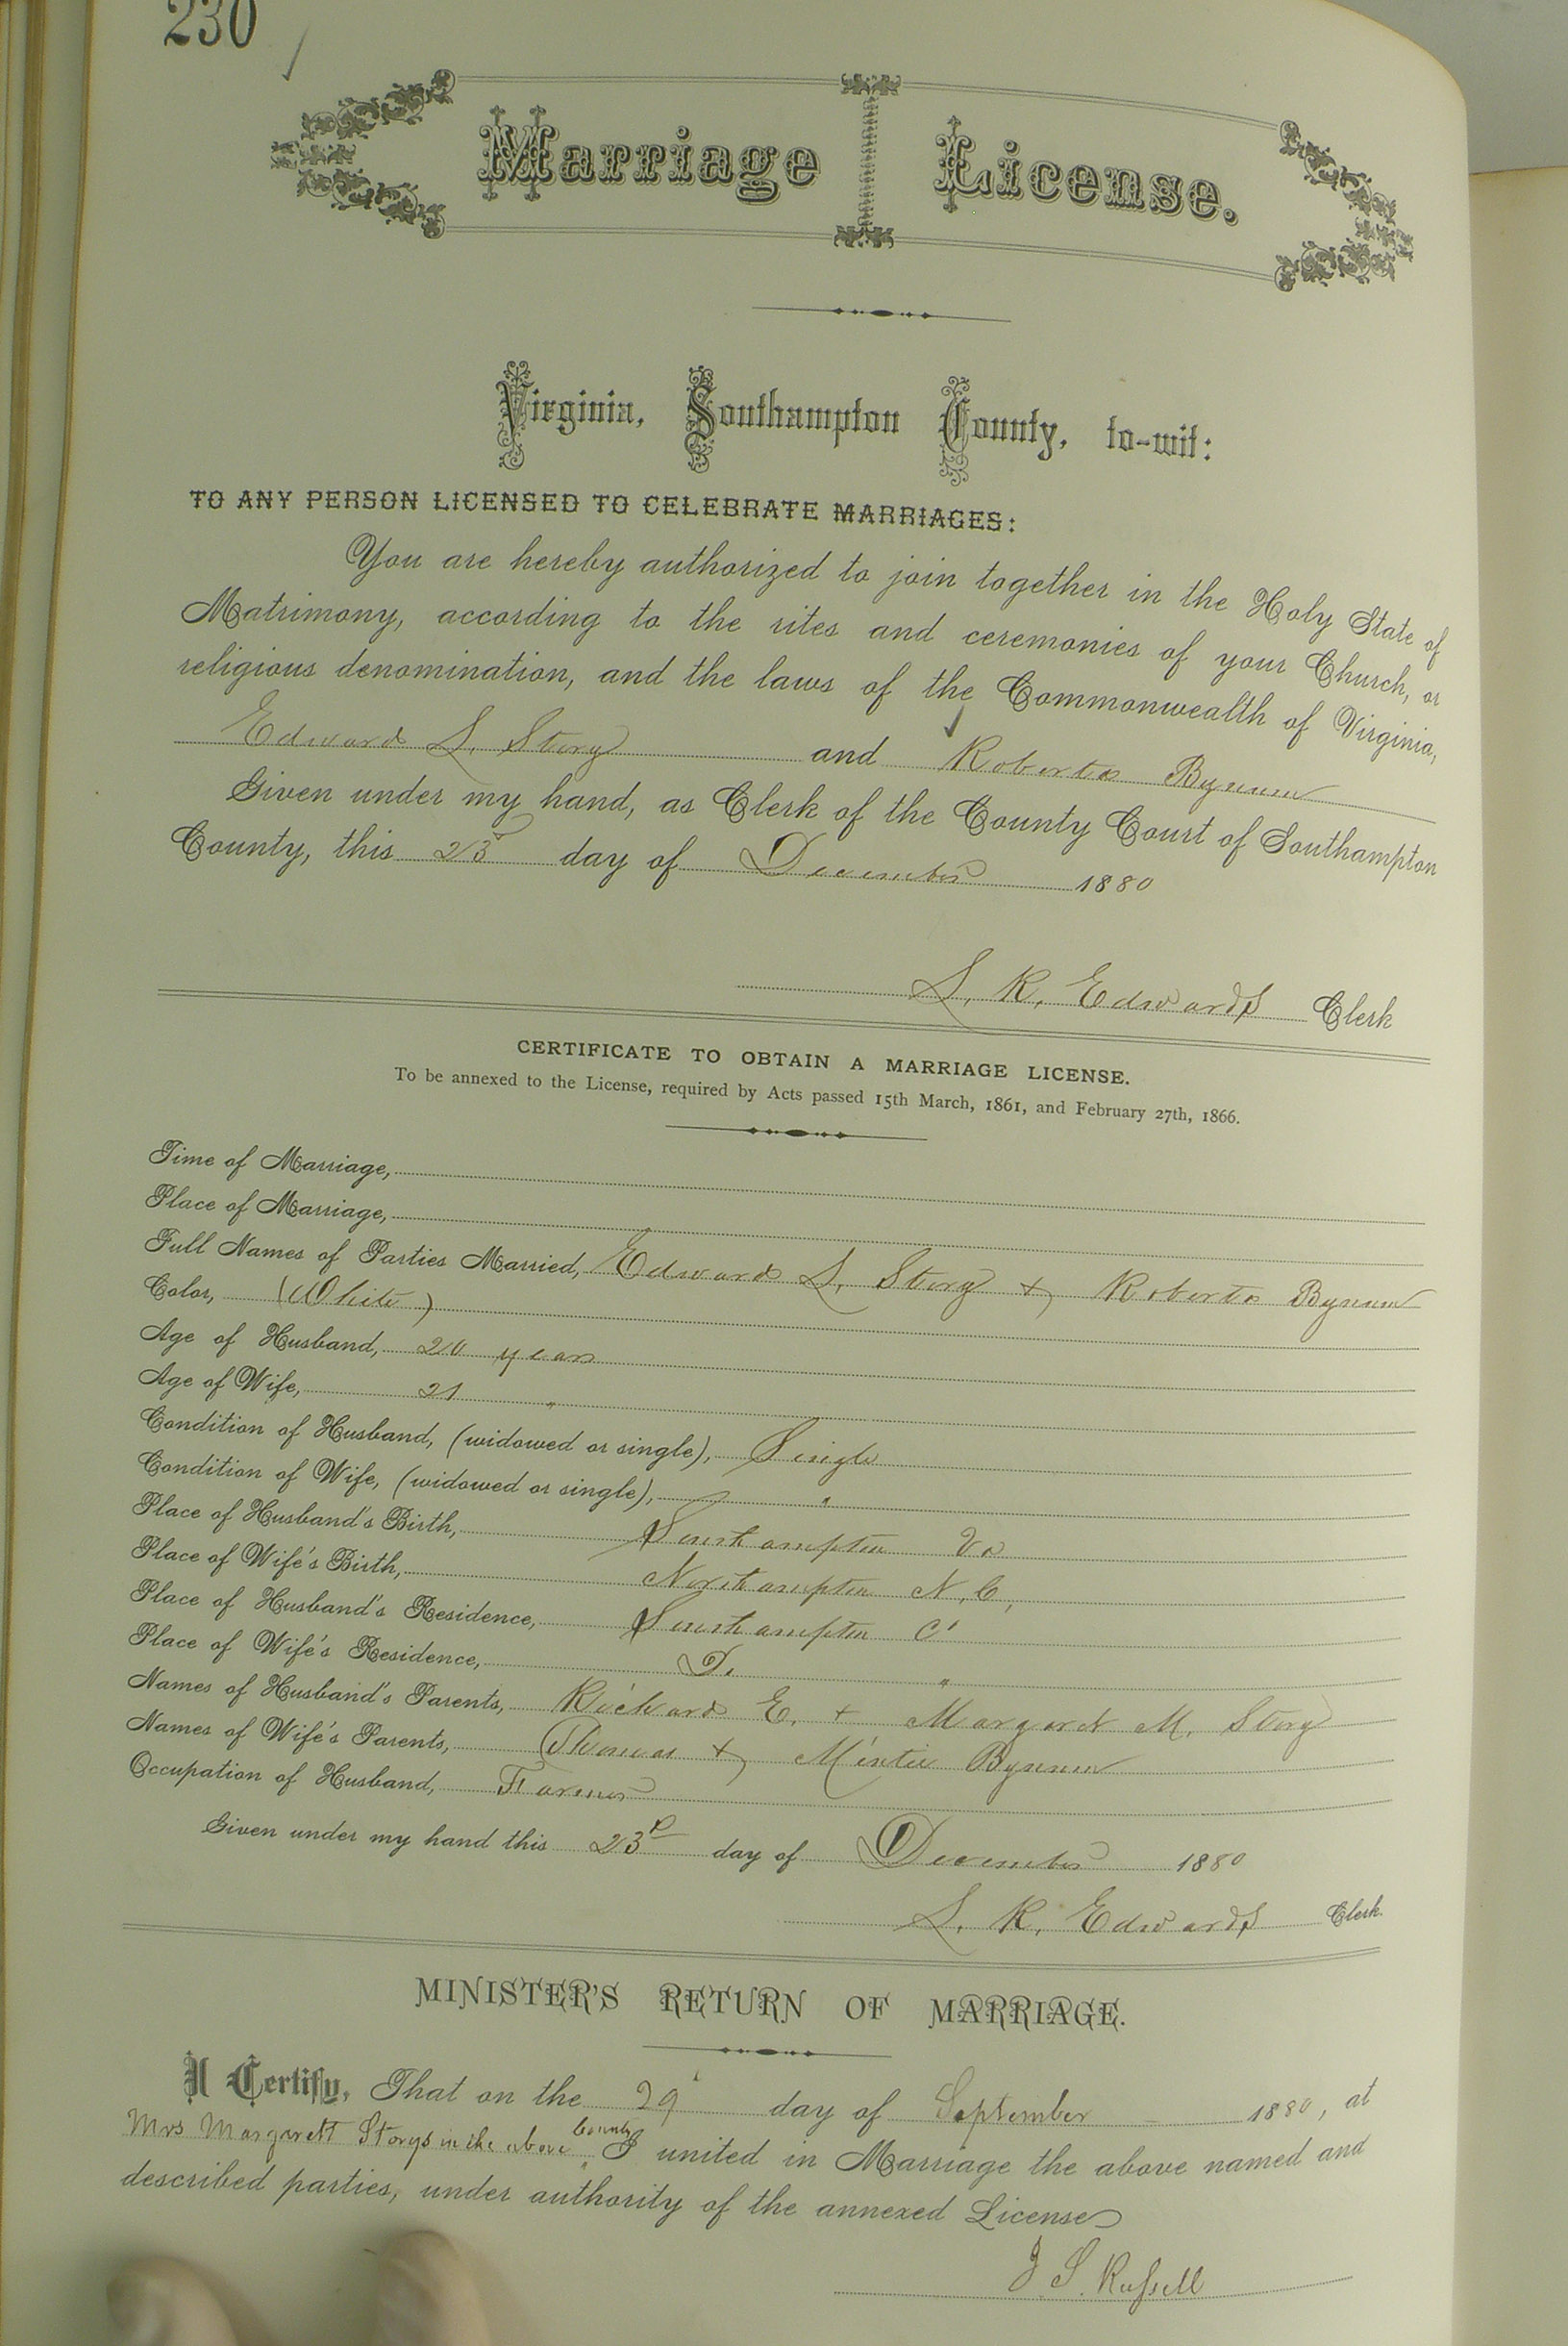 230
Marriage License.
Virginia, Southampton County, to-wit:
TO ANY PERSON LICENSED TO CELEBRATE MARRIAGES:
You are hereby authorized to join together in the Holy State of
Matrimony, according to the rites and ceremonies of your Church, or
religious denomination, and the laws of the Commonwealth of Virginia,
Edward L. Story and Roberta Bynum
Given under my hand, as Clerk of the County Court of Southampton
County, this 23 day of December 1880
L. R. Edwards Clerk
CERTIFICATE TO OBTAIN A MARRIAGE LICENSE.
To be annexed to the License, required by Acts passed 15th March, 1861, and February 27th, 1866.
Time of Marriage,
Place of Marriage,
Full Names of Parties Married, Edward L. Story + Roberta Bynum
Color, (White)
Age of Husband, 20 years
Age of Wife, 21 "
Condition of Husband, (widowed or single), Single
Condition of Wife, (widowed or single), "
Place of Husband's Birth, Southampton Va
Place of Wife's Birth, Northampton N.C,
Place of Husband's Residence, Southampton Co
Place of Wife's Residence, Do "
Names of Husband's Parents, Richard E. + Margaret M. Story
Names of Wife's Parents, Thomas + Mintie Bynum
Occupation of Husband, Farmer
Given under my hand this 23d day of December 1880
L. R. Edwards Clerk.
MINISTER'S RETURN OF MARRIAGE.
I Certify, That on the 29 day of September 1880, at
Mrs Margarett Storys in the above County I united in Marriage the above named and
described parties, under authority of the annexed License
J S. Russell